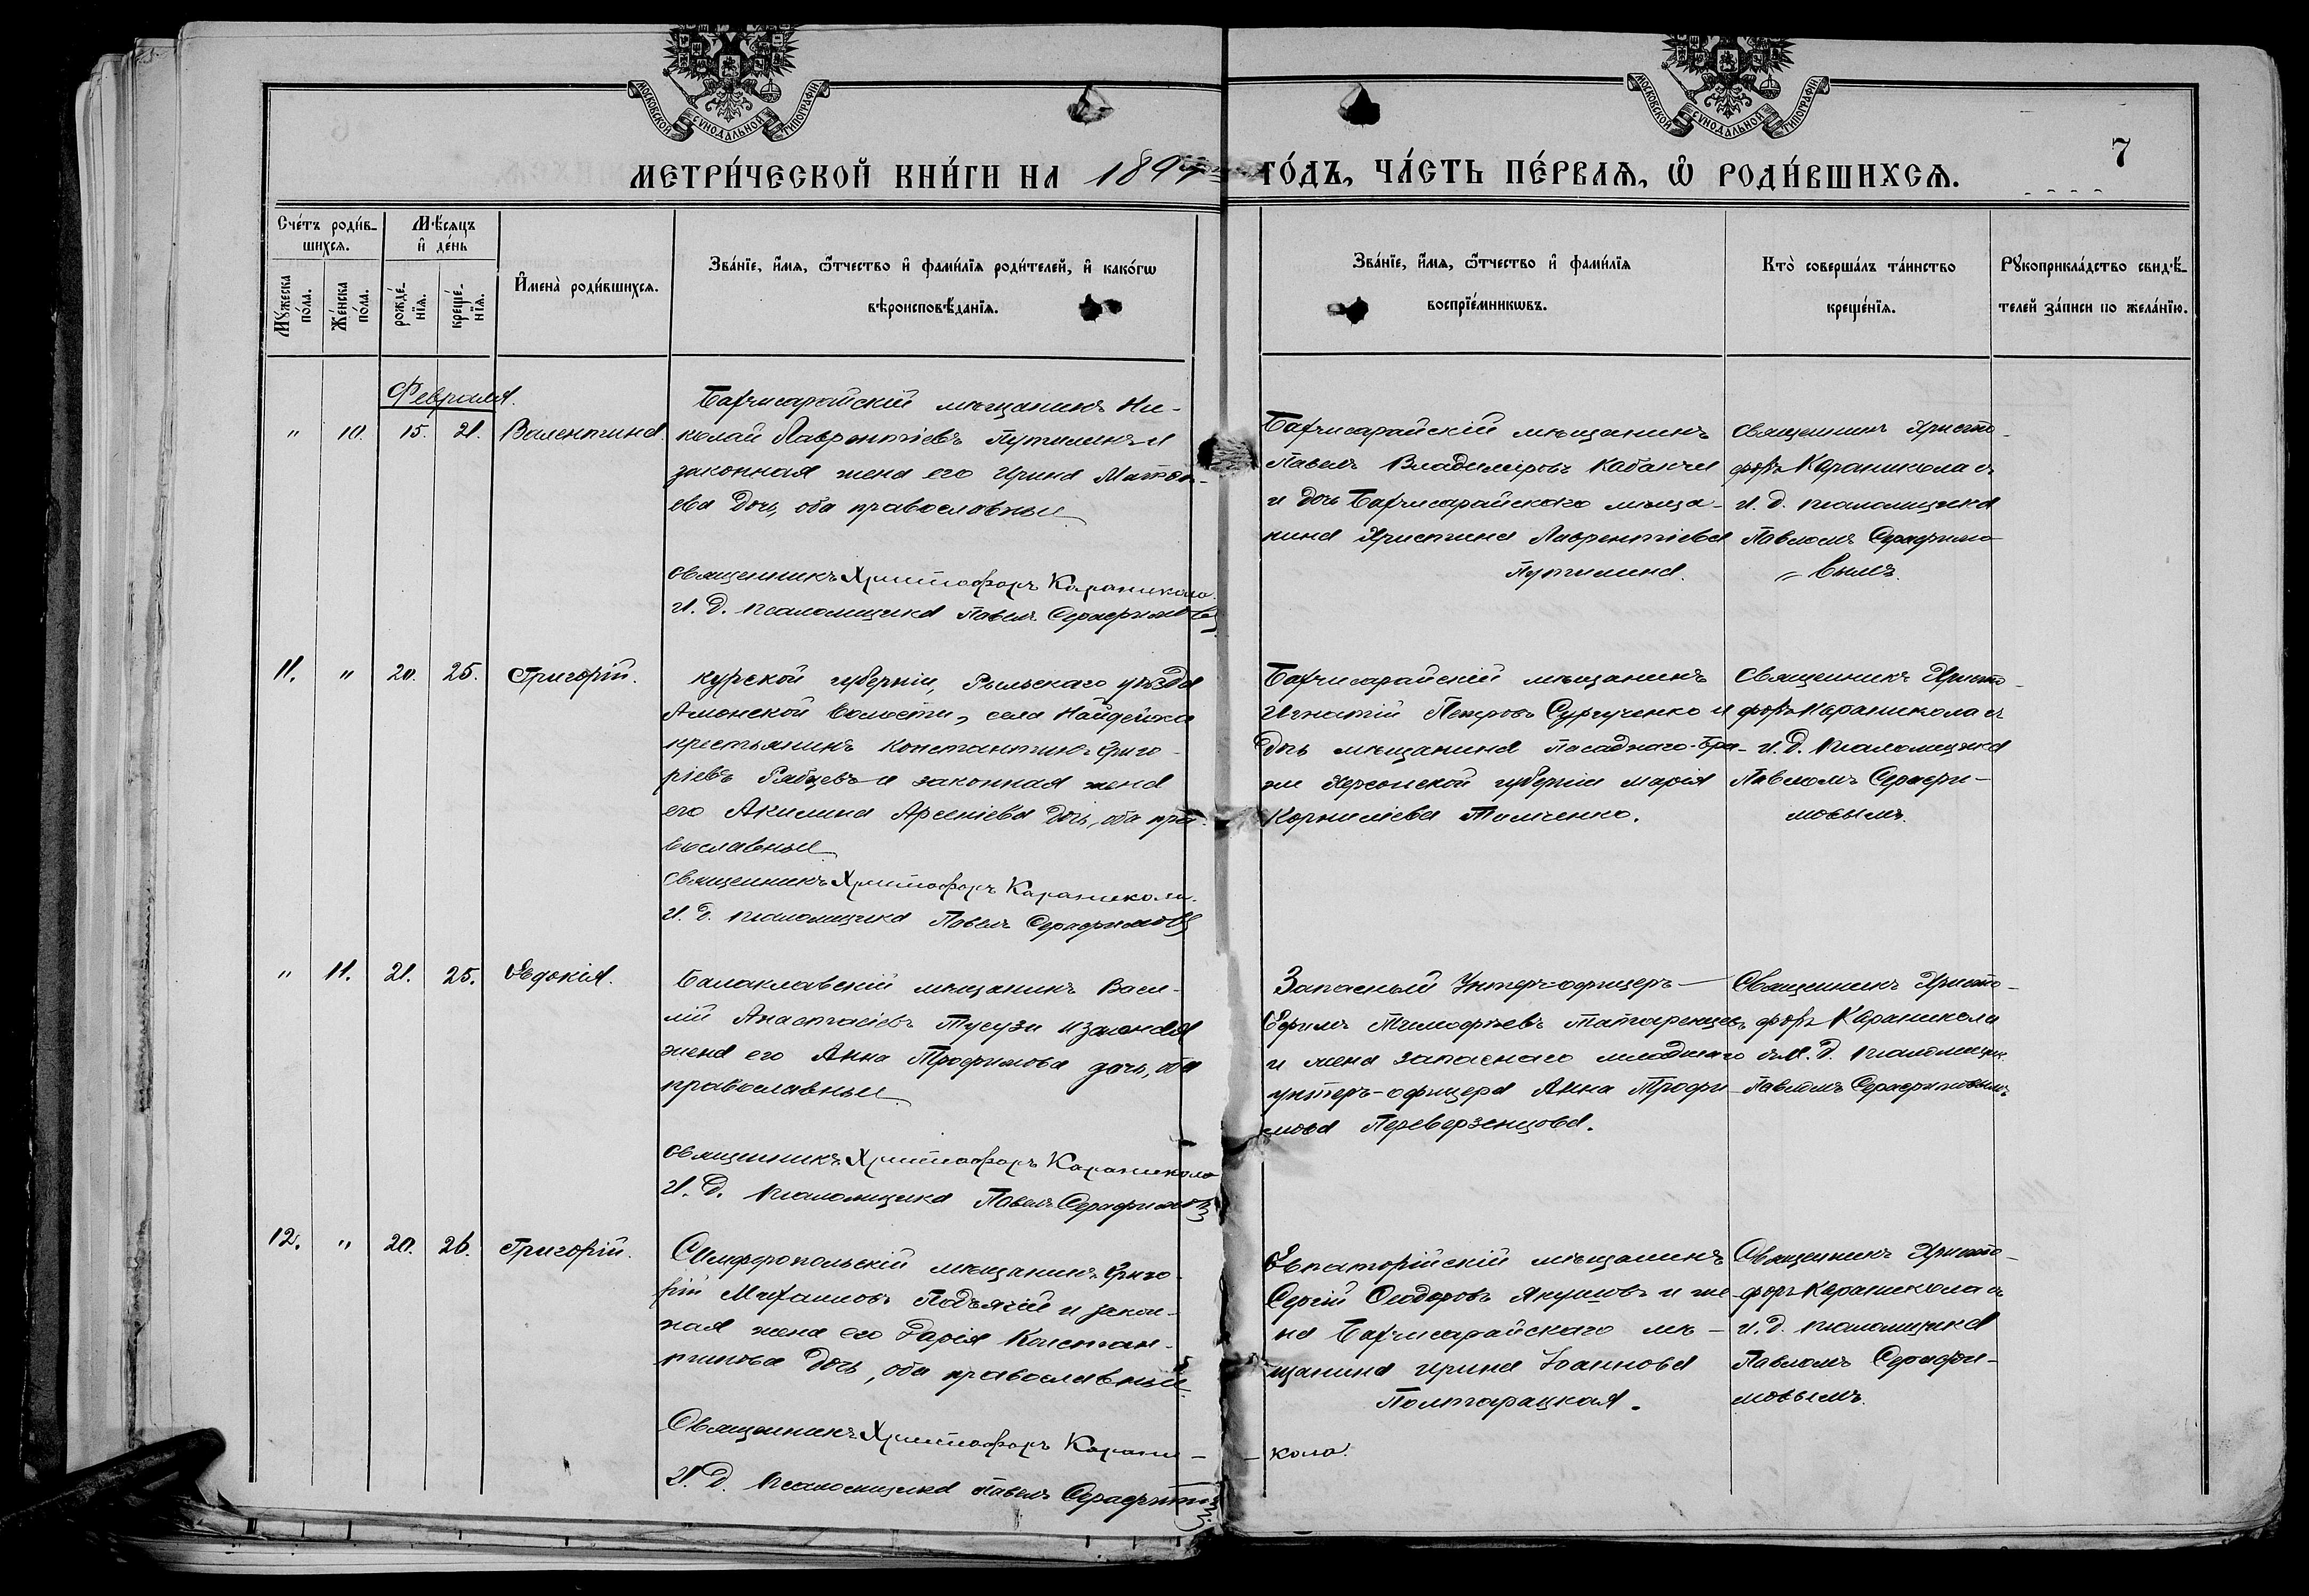 МОСКОВСКОЙ СѴНОДАЛЬНОЙ ТИПОГРАФІИ
МОСКОВСКОЙ СѴНОДАЛЬНОЙ ТИПОГРАФІИ
7
МЕТРИ́ЧЕСКОЙ КНИ́ГИ НА 189 ГО́ДЪ, ЧА́СТЬ ПЕ́РВАѦ, Ѡ РОДИ́ВШИХСѦ.
Сче́тъ роди́в-
шихсѧ.
Мѣ́сѧцъ
и҆ де́нь
Мꙋ́жеска
по́ла.
Же́нска
по́ла.
рожде́-
нїѧ.
креще́-
нїѧ.
И҆мена̀ роди́вшихсѧ.
Зва́нїе, и҆́мѧ, ѻ҆́тчество и҆ фами́лїѧ роди́телей, и҆ како́гѡ
вѣроисповѣ́данїѧ.
Зва́нїе, и҆́мѧ, ѻ҆́тчество и҆ фами́лїѧ
воспрїе́мникѡвъ.
Кто̀ соверша́лъ та́инство
креще́нїѧ.
Рꙋкоприкла́дство свидѣ́-
телей за́писи по жела́нїю.
Февраля.
" 10. 15. 21. Валентина.
Бахчисарайскій мѣщанинъ Ни-
колай Лаврентіевъ Путилинъ и
законная жена его Ирина
ева дочь, оба православные
Священникъ Христофоръ Караникола.
И. д. псаломщика Павелъ Серафимовъ
Бахчисарайскій мѣщанинъ
Павелъ Владиміровъ Кабанчи
и дочь Бахчисарайскаго мѣща-
нина Христина Лаврентіева
Путилина.
Священникъ Христо-
форъ Караникола съ
и. д. псаломщика
Павломъ Серафимо-
" вымъ.
11. " 20. 25. Григорій.
Курской губерніи, Рыльскаго уѣзда
Амонской волости, села
крестьянинъ Константинъ Григо-
ріевъ Рябцевъ и законная жена
его Акилина Арсеніева дочь, оба пра-
вославные
Священникъ Христофоръ Караникола.
И. д. псаломщика Павелъ Серафимовъ
Бахчисарайскій мѣщанинъ
Игнатій Петровъ Сургученко и
дочь мѣщанина
Херсонской губерніи Марія
Корниліева
Священникъ Христо-
форъ Караникола съ
и. д. псаломщика
Павломъ Серафи-
мовымъ.
" 11. 21. 25. Евдокія.
Балаклавскій мѣщанинъ Васи-
лій Анастасіевъ Тусузи и законная
жена его Анна Трофимова дочь, оба
православные
Священникъ Христофоръ Караникола
И. д. псаломщика Павелъ Серафимовъ
Запасный Унтеръ-офицеръ
Ефимъ Тимофѣевъ Татаренцевъ
и жена запаснаго младшаго
унтеръ-офицера Анна Трофи-
мова Переверзенцова.
Священникъ Христо-
форъ Караникола
съ И. д. псаломщик.
Павломъ Серафимовымъ
12. " 20. 26. Григорій.
Симферопольскій мѣщанинъ Григо-
рій Михаиловъ Подъячій и закон-
ная жена его Дарія Констан-
тинова дочь, оба православные
Священникъ Христофоръ Карани-
И. д. псаломщика Павелъ Серафимовъ
Евпаторійскій мѣщанинъ
Сергій Ѳеодоровъ Якушовъ и же-
на Бахчисарайскаго мѣ-
щанина Ирина Іоаннова
Полторацкая.
- кола.
Священникъ Христо-
форъ Караникола съ
и. д. псаломщика
Павломъ Серафи-
мовымъ.